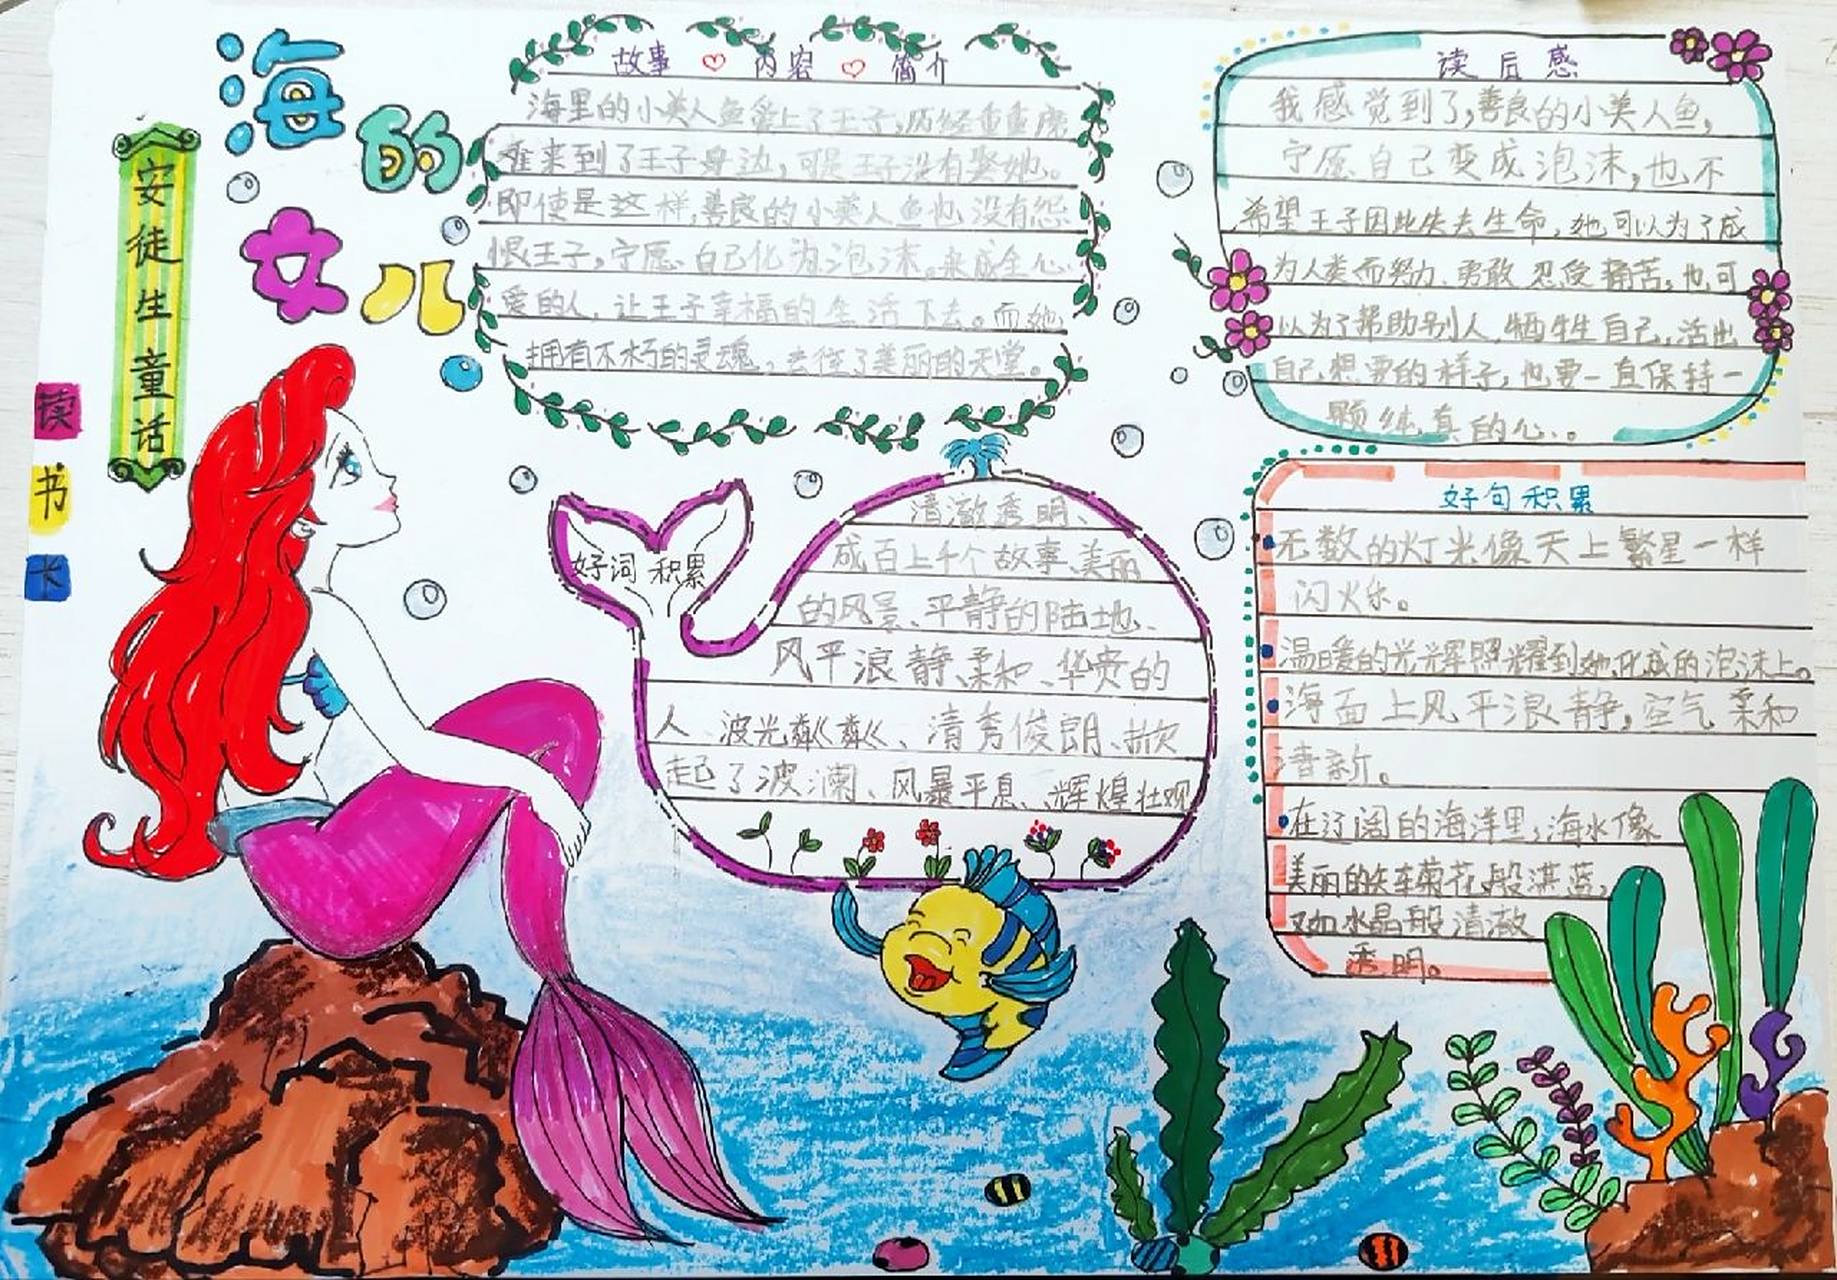 海的
女儿
安徒生童话
读书卡
故事 内容 简介
海里的小美人鱼爱上了王子,历经重重磨
难来到了王子身边,可是王子没有娶她。
即使是这样,善良的小美人鱼也没有怨
恨王子,宁愿自己化为泡沫。来成全心
爱的人,让王子幸福的生活下去。而她
拥有不朽的灵魂。去往了美丽的天堂。
读后感
我感觉到了,善良的小美人鱼,
宁愿自己变成泡沫,也不
希望王子因此失去生命,她可以为了成
为人类而努力、勇敢忍受痛苦,也可
以为了帮助别人,牺牲自己,活出
自己想要的样子,也要一直保持一
颗纯真的心。
好词积累
清澈秀明、
成百上千个故事、美丽
的风景、平静的陆地、
风平浪静、柔和、华贵的
人、波光粼粼、清秀俊朗、掀
起了波澜、风暴平息、辉煌壮观
好句积累
无数的灯光像天上繁星一样
闪烁。
温暖的光辉照耀到她化成的泡沫上。
海面上风平浪静,空气柔和
清新。
在辽阔的海洋里,海水像
美丽的矢车菊花般湛蓝,
又如水晶般清澈
秀明。